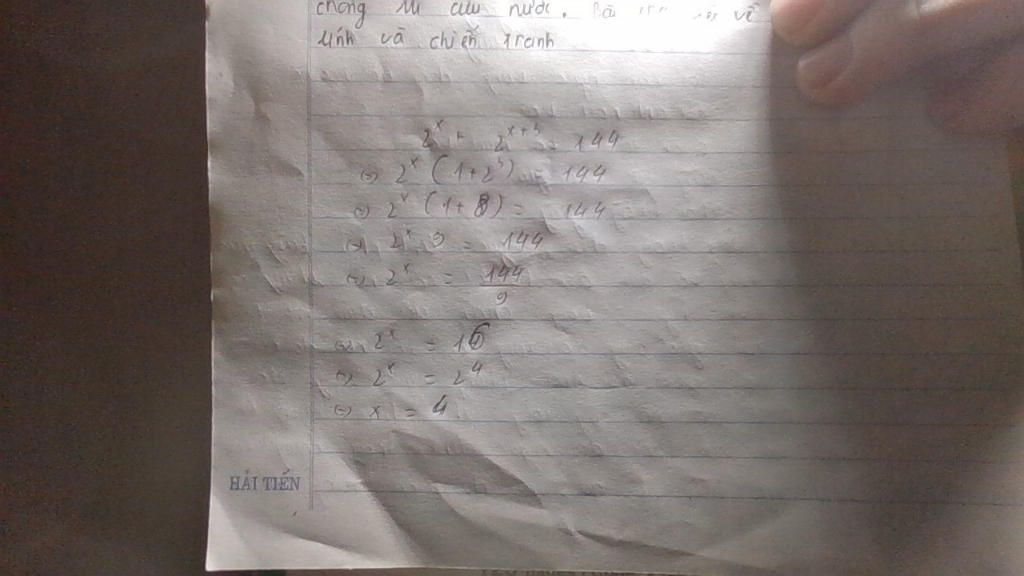 chống Mĩ cứu nước. về
lính và chiến tranh
2ˣ + 2ˣ⁺³ = 144
⇔ 2ˣ (1+2³) = 144
⇔ 2ˣ (1+8) = 144
⇔ 2ˣ. 9 = 144
⇔ 2ˣ = 144/9
⇔ 2ˣ = 16
⇔ 2ˣ = 2⁴
⇔ x = 4
HẢI TIẾN